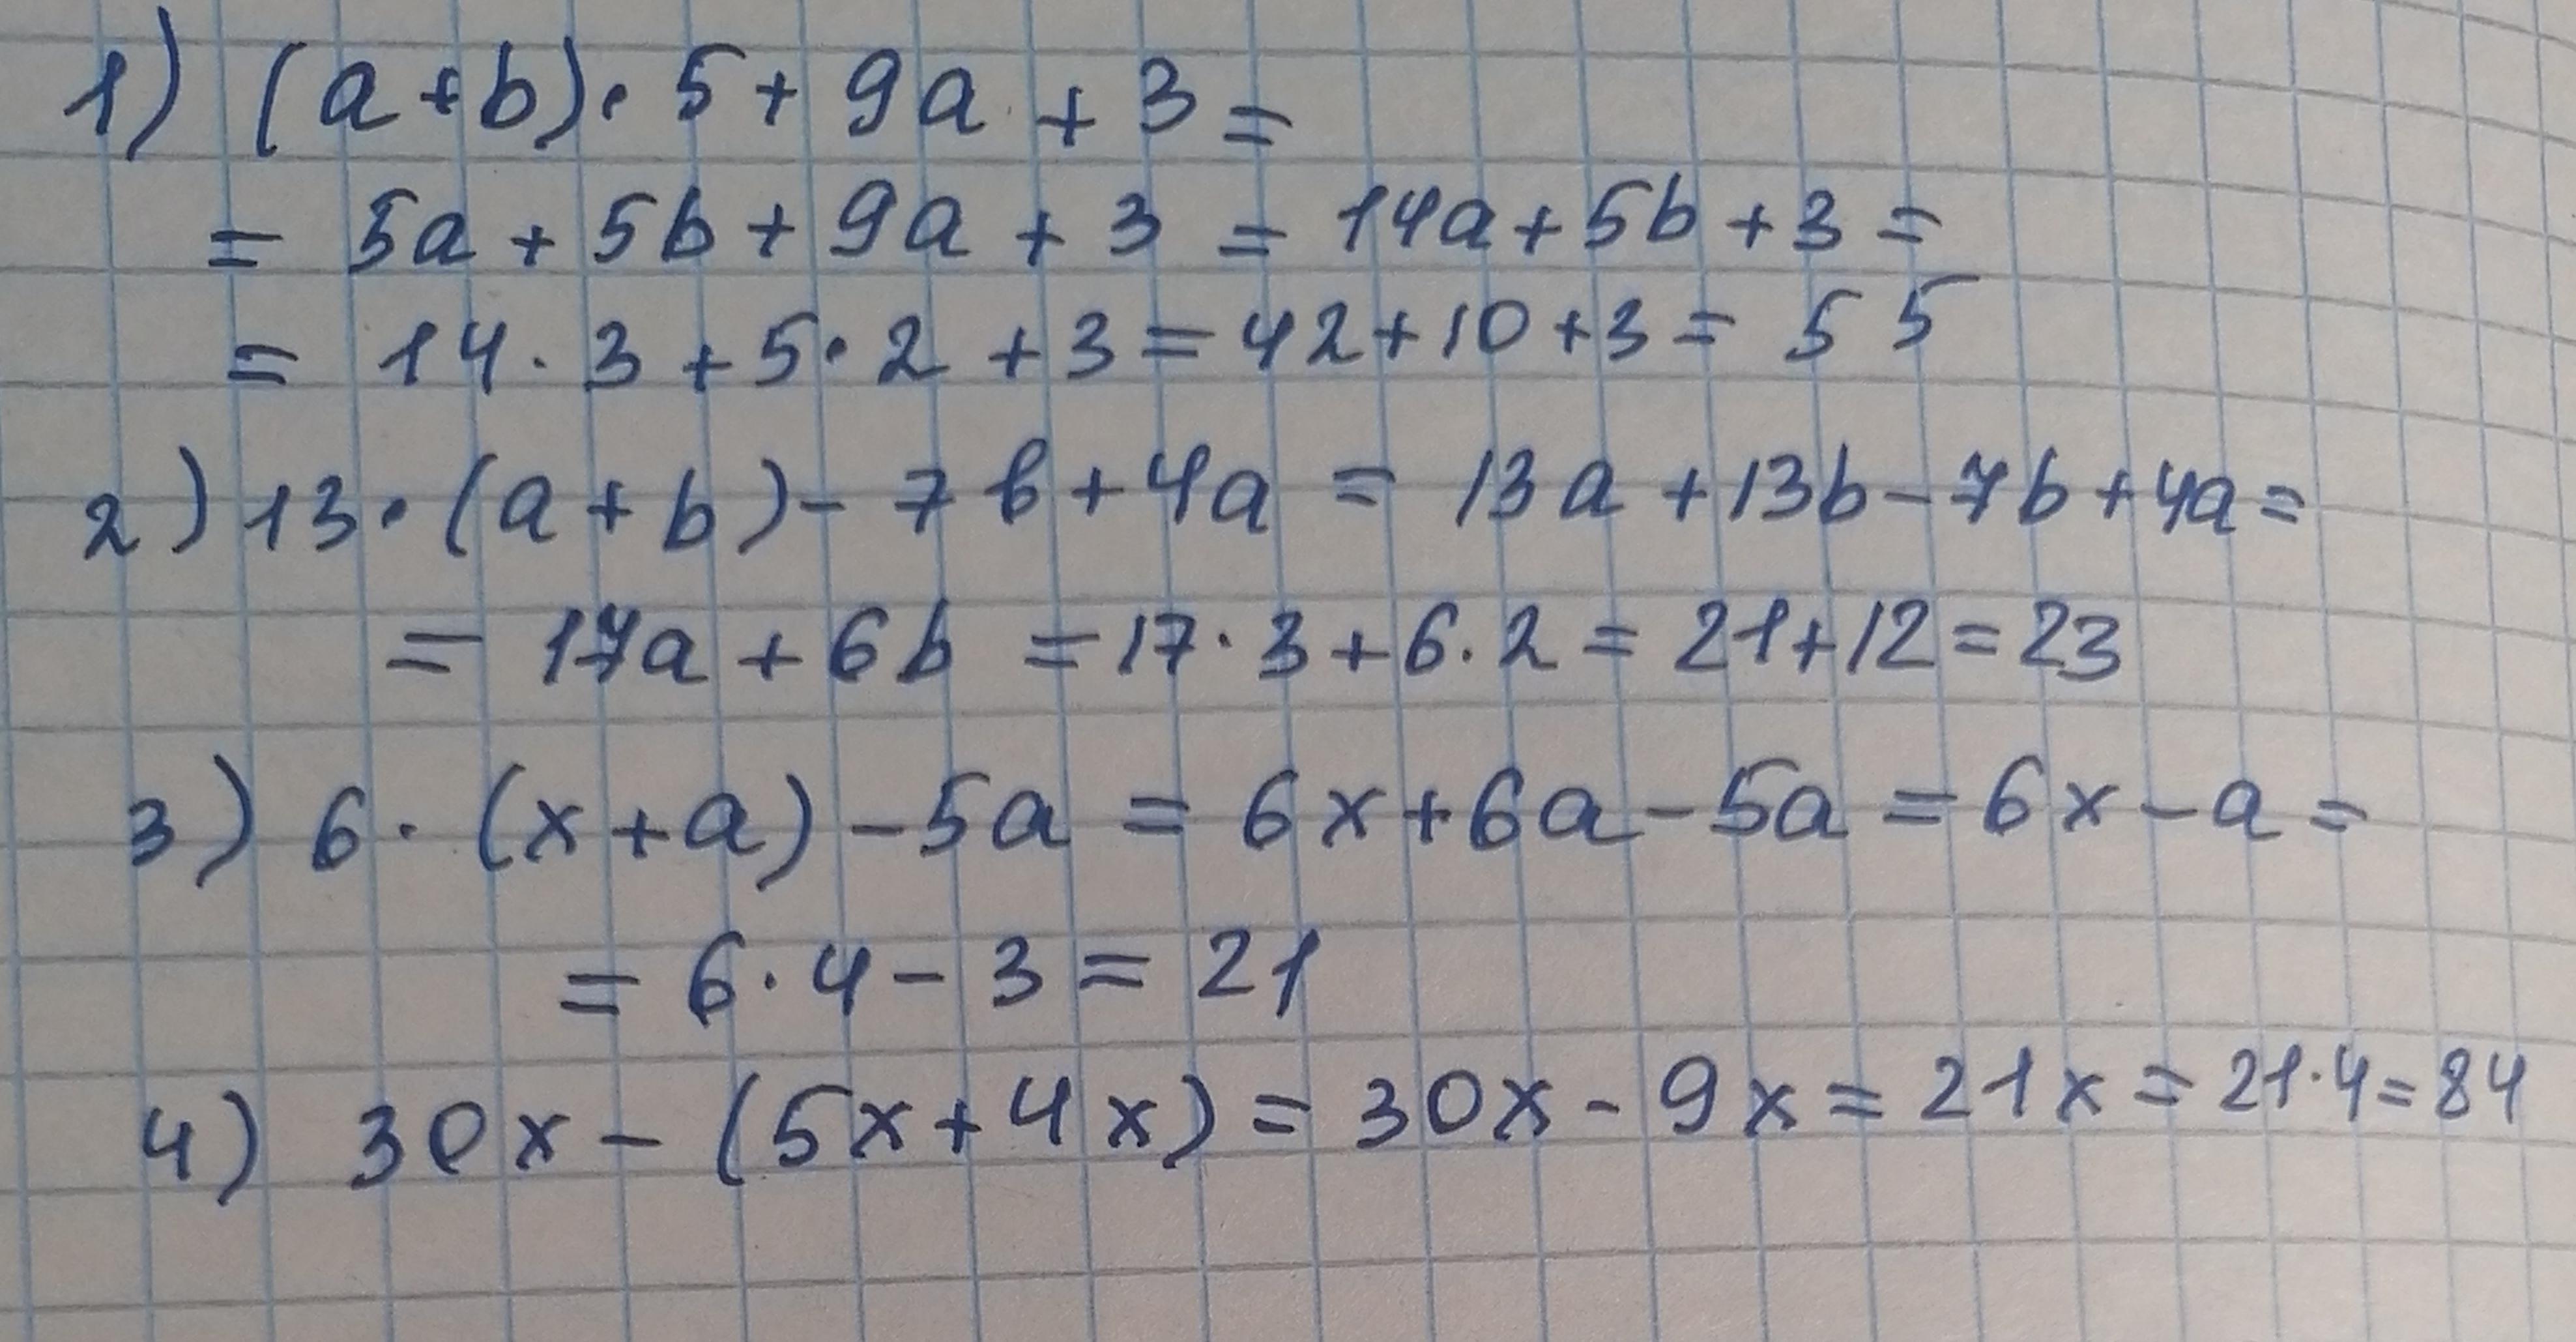 1) (a+b)·5+9a+3=
= 5a+5b+9a+3 = 14a+5b+3=
= 14·3+5·2+3=42+10+3= 55
2) 13·(a+b)-7b+4a = 13a+13b-7b+4a=
= 17a+6b =17·3+6·2=21+12=23
3) 6·(x+a)-5a = 6x+6a-5a=6x-a=
= 6·4-3=21
4) 30x-(5x+4x)=30x-9x=21x=21·4=84